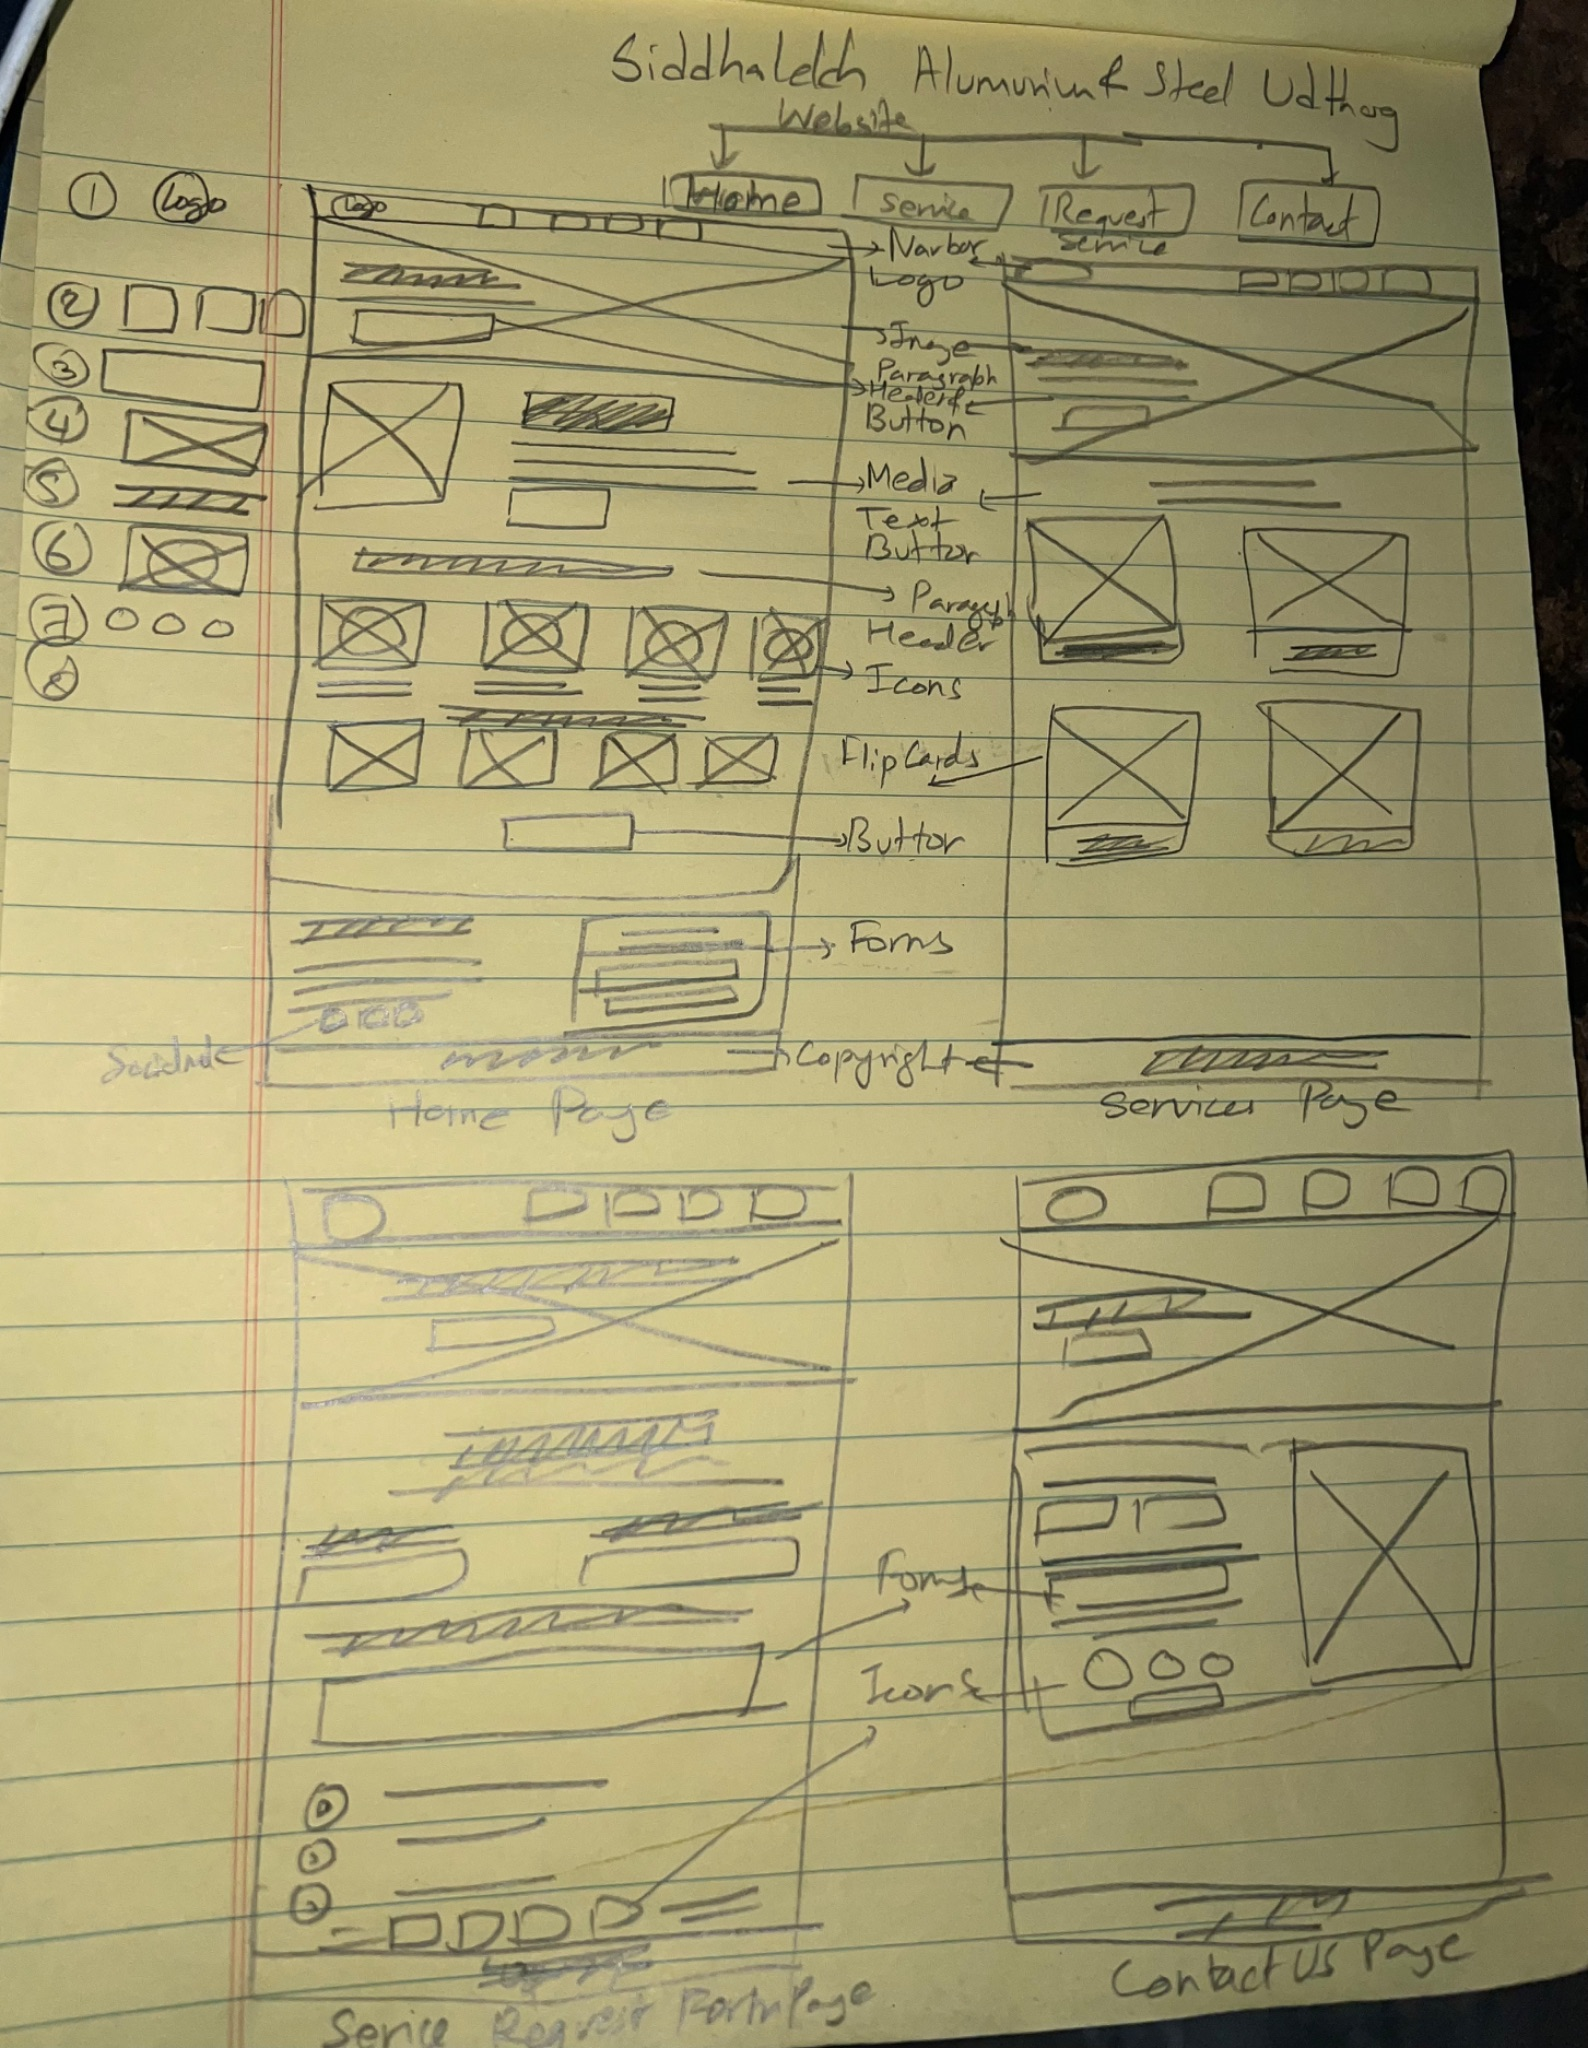 Siddhalekh Alumunium & Steel Udhyog
Website
Home
Service
Request
Service
Contact
1 Logo
2
3
4
5
6
7
8
Logo
Navbar
Logo
Image
Paragraph
Header &
Button
Media
Text
Button
Paragraph
Header
Icons
Flip Cards
Button
Forms
Copyright
Home Page
Services Page
Forms
Icons
Service Request Form Page
Contact Us Page